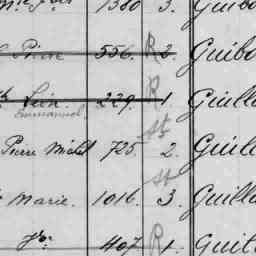 1380 3. Guibo
Pierre 556. R 2. Guibo
229. R 1. Guill
Emmanuel.
Pierre Michel 725. St 2. Guill
Marie. 1016. St 3. Guilla
407 R 1. Guil